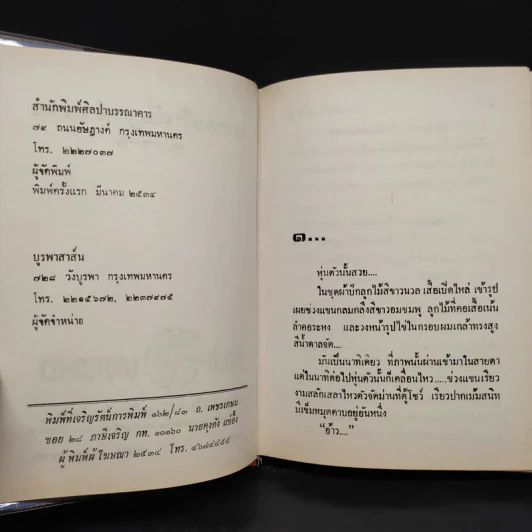 สำนักพิมพ์ศิลปาบรรณาคาร
๗๙ ถนนอัษฎางค์ กรุงเทพมหานคร
โทร. ๒๒๒๗๐๓๗
ผู้จัดพิมพ์
พิมพ์ครั้งแรก มีนาคม ๒๕๓๔
บูรพาสาส์น
๗๒๘ วังบูรพา กรุงเทพมหานคร
โทร. ๒๒๑๕๖๗๒, ๒๒๓๗๙๗๕
ผู้จัดจำหน่าย
พิมพ์ที่เจริญรัตน์การพิมพ์ ๑๖๒/๘๓ ถ. เพชรเกษม
ซอย ๒๘ ภาษีเจริญ กท. ๑๐๑๖๐ นายคุงกัง แซ่อึ้ง
ผู้พิมพ์ผู้โฆษณา ๒๕๓๔ โทร. ๔๖๗๔๘๕๕
๑...
หุ่นตัวนั้นสวย....
ในชุดผ้าปักลูกไม้สีขาวนวล เสื้อเปิดไหล่ เข้ารูป
เผยช่วงแขนกลมกลึงสีขาวอมชมพู ลูกไม้ที่คอเสื้อเน้น
ลำคอระหง และวงหน้ารูปไข่ในกรอบผมเกล้าทรงสูง
สีน้ำตาลจัด....
มันเป็นนาทีเดียว ที่ภาพนั้นผ่านเข้ามาในสายตา
แต่ในนาทีต่อไปหุ่นตัวนั้นก็เคลื่อนไหว.....ช่วงแขนเรียว
งามสลักเสลาไหวตัวจัดม่านที่ตู้โชว์ เรียวปากเม้มสนิท
มีเข็มหมุดคาบอยู่อันหนึ่ง
“อ้าว....”